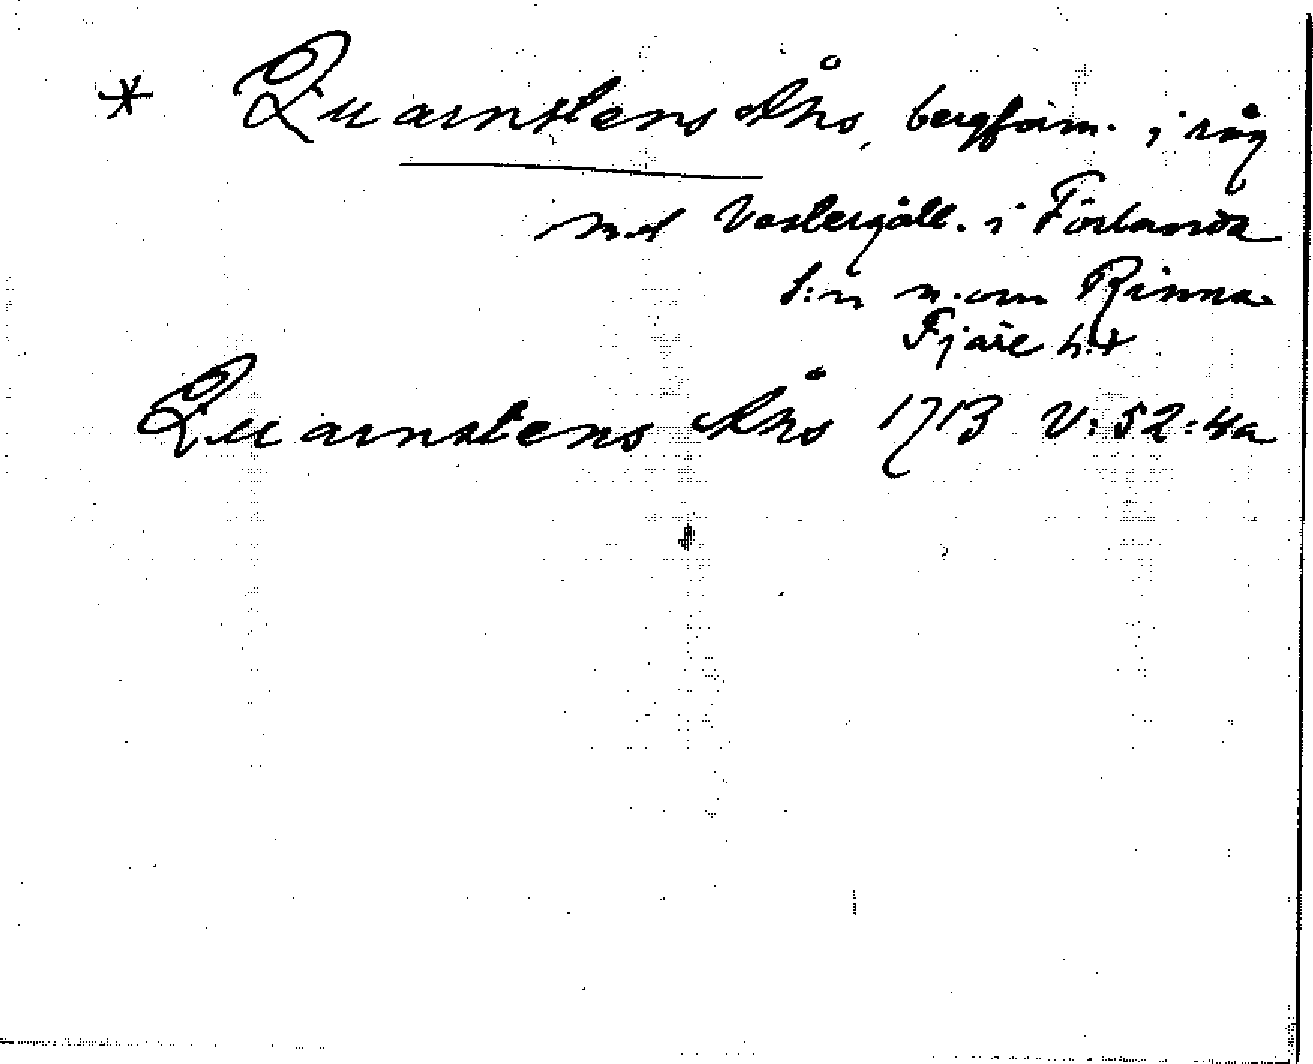 * Quarnstens Åhs, bergform. i råg
med Västergötl. i Förlanda
s:n n. om Rinna
Fjäre h:d
Quarnstens Åhs 1713 V:52:4a